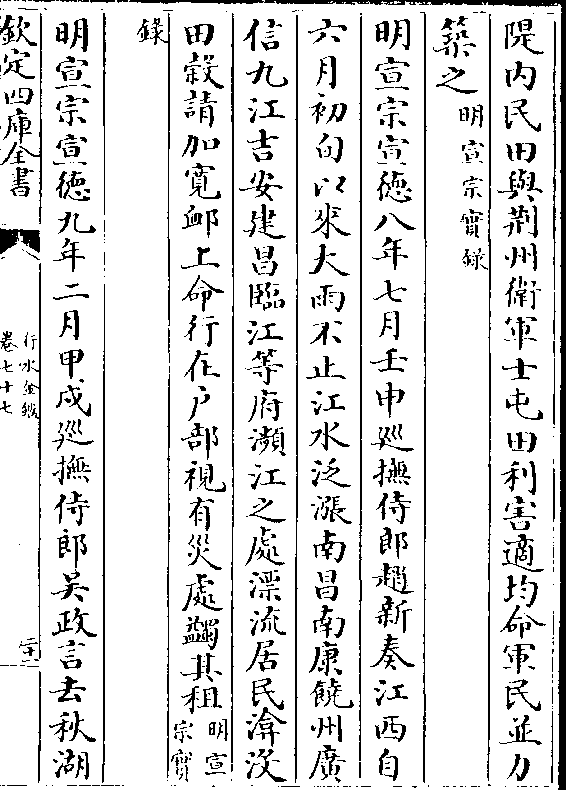 隄内民田與荆州衛軍士屯田利害適均命軍民並力
築之明宣宗實録
明宣宗宣徳八年七月壬申廵撫侍郎趙新奏江西自
六月初旬以來大雨不止江水泛漲南昌南康饒州廣
信九江吉安建昌臨江等府瀕江之處漂流居民渰没
田榖請加寛䘏上命行在户部視有災處蠲其租明宣宗實
録
明宣宗宣徳九年二月甲戍廵撫侍郎吴政言去秋湖
欽定四庫全書
行水金鑑
卷七十七